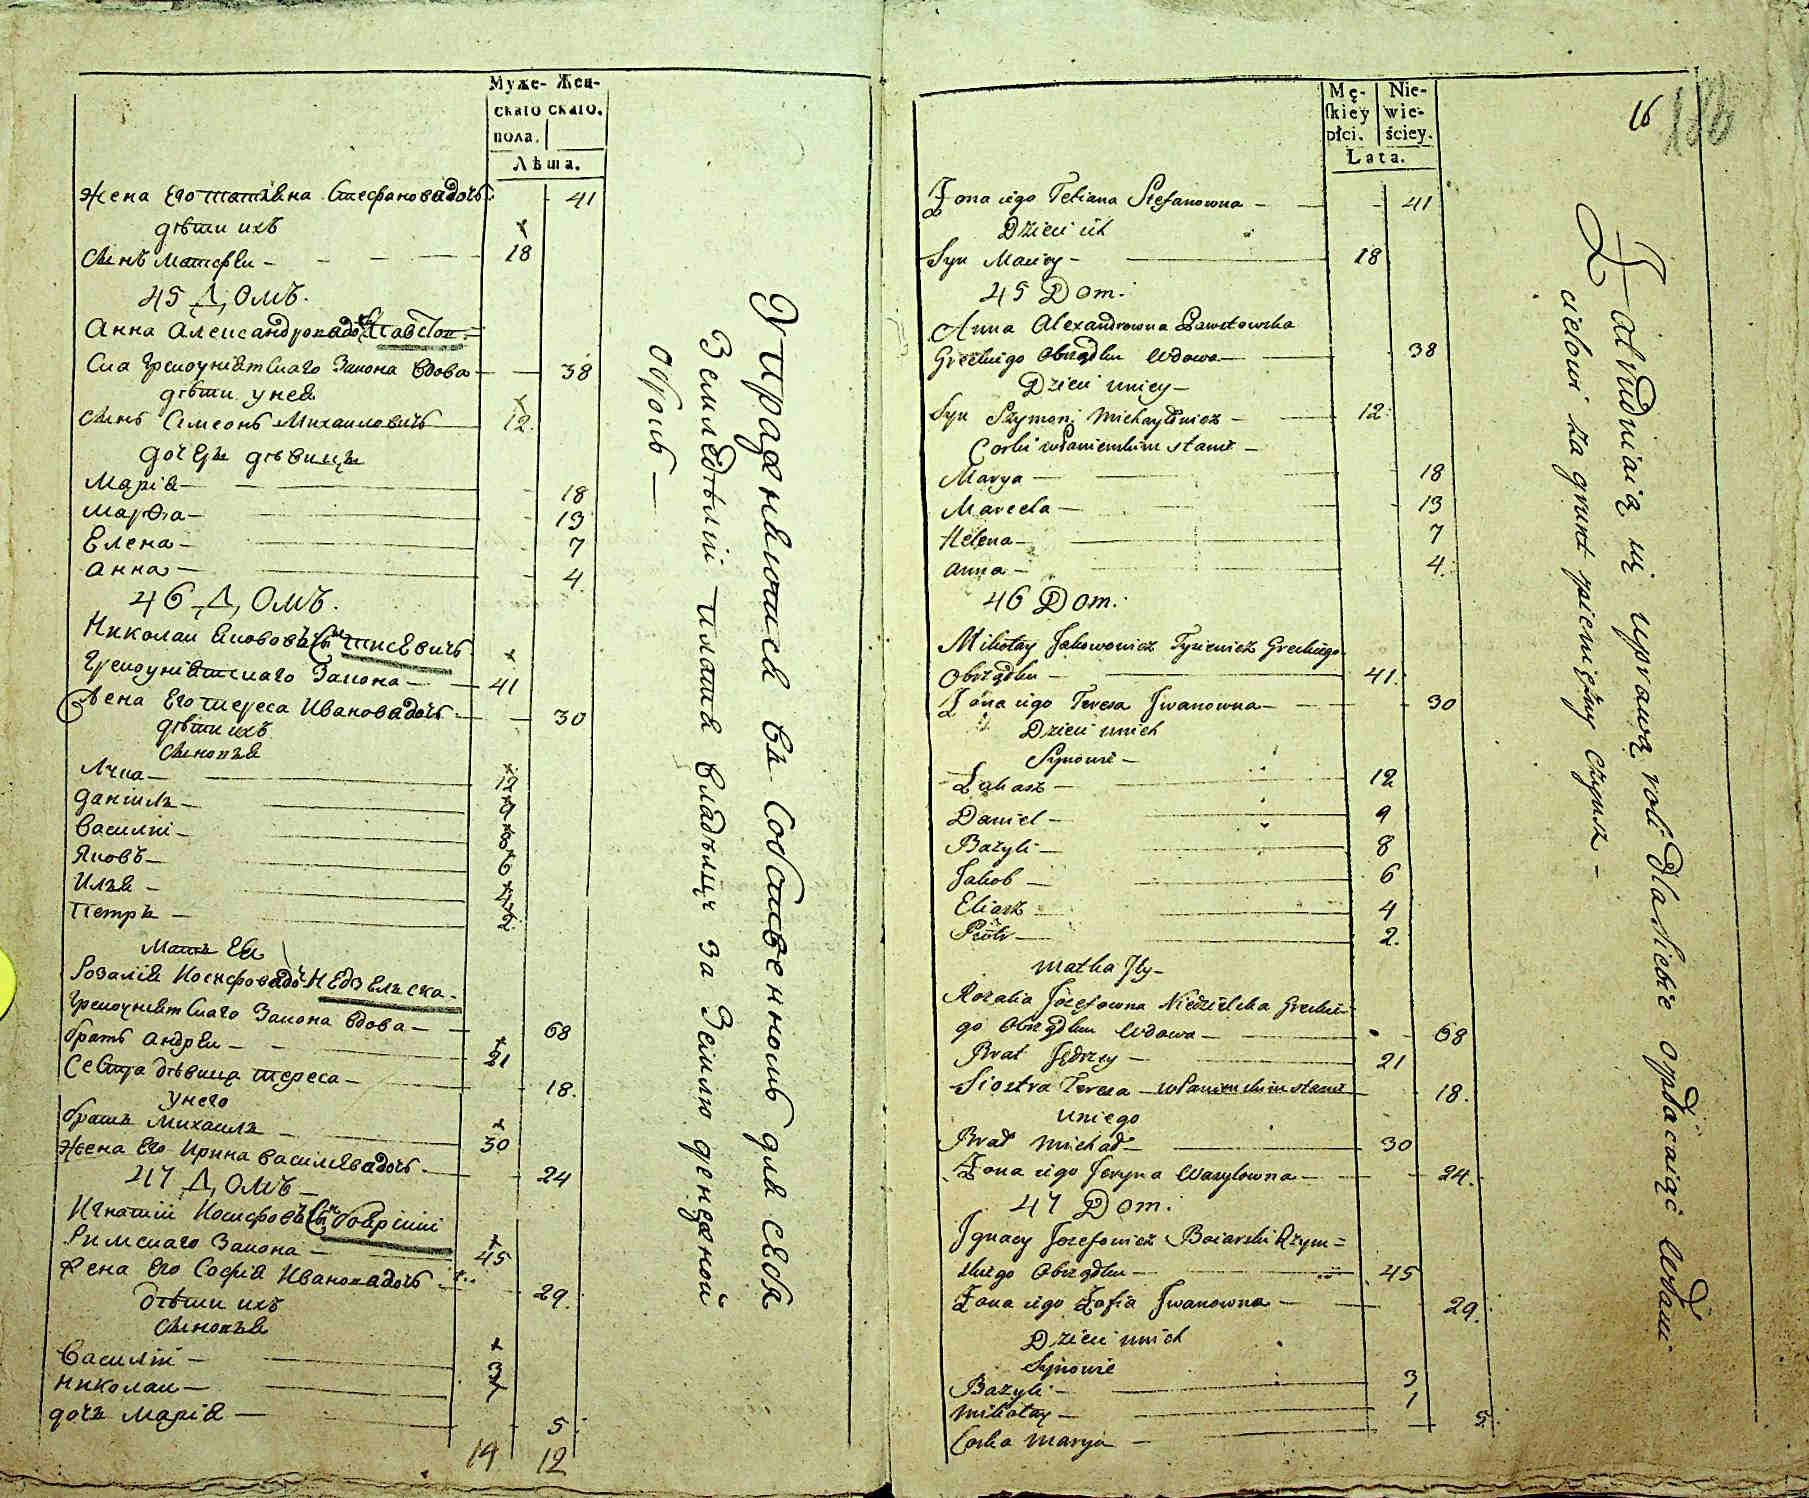 Муже- Жен-
скаго скаго.
пола.
Лѣта.
Жена Его татіяна Стефановадочь 41
дѣти ихъ
Сынъ Матфеи 18
45 Домъ.
Анна Александровадочь Павстов=
ска Грекоуніятскаго Закона вдова 38
дѣти унея
Сынъ Симеонъ Михаиловичъ 12.
дочеры дѣвицы
Марія 18
Марѳа 13
Елена 7
Анна 4
46 Домъ.
Николаи Яковов Сынъ тисевичъ
Грекоуніятскаго Закона 41
Жена Его тереса Ивановадочь 30
дѣти ихъ
Сыновья
Лука 12
Даніилъ 9
Василіи 8
Яковъ 6
Илья 4
Петръ 2.
Мать Ея
Розалія Иосифовадочь Недзелска
Грекоуніятскаго Закона вдова 68
братъ Андреи 21
Сестра дѣвица тереса 18.
унего
братъ Михаилъ 30
Жена Его Ирина Василевадочь 24
47 Домъ
Игнатіи Иосифовъ Сынъ боярскіи
Римскаго Закона 45
Жена Его Софія Ивановадочь 29.
дѣти ихъ
Сыновья
Василіи 3
Николаи 1
дочь Марія 5
14 12
Упражняются въ Собственномъ для себя
Земледѣліи платя владѣлцу за Землю денежной
Оброкъ
Mę- Nie-
skiey wie-
płci. ściey.
Lata.
16
Żona iego Tetiana Stefanowna 41
Dzieci ich
Syn Maciey 18
45 Dom.
Anna Alexandrowna Pawstowska
Greckiego Obrządku Wdowa 38
Dzieci uniey
Syn Szymon Michayłowicz 12
Corki w Panienskim stanie
Marya 18
Marcela 13
Helena 7
Anna 4
46 Dom.
Mikołay Jakowowicz Tysiewicz Greckiego
Obrządku 41.
Żona iego Teresa Jwanowna 30
Dzieci unich
Synowie
Łukasz 12
Daniel 9
Bazyli 8
Jakob 6
Eliasz 4
Piotr 2.
matka Jey
Rozalia Józefowna Niedzielska Greckie-
go Obrządku Wdowa 68
Brat Jędrzey 21
Siostra Teresa w Panienskim stanie 18.
uniego
Brat Michał 30
Żona iego Jeryna Wasylowna 24.
47 Dom.
Jgnacy Jozefowicz Boiarski Rzym=
skiego Obrządku 45
Żona iego Zofia Jwanowna 29.
Dzieci unich
Synowie
Bazyli 3
mikołay 1
Corka Marya 5
Zatrudniaią się uprawą roli dla siebie opłacaiąc Wła
cielowi za grunt pieniężny Czynsz